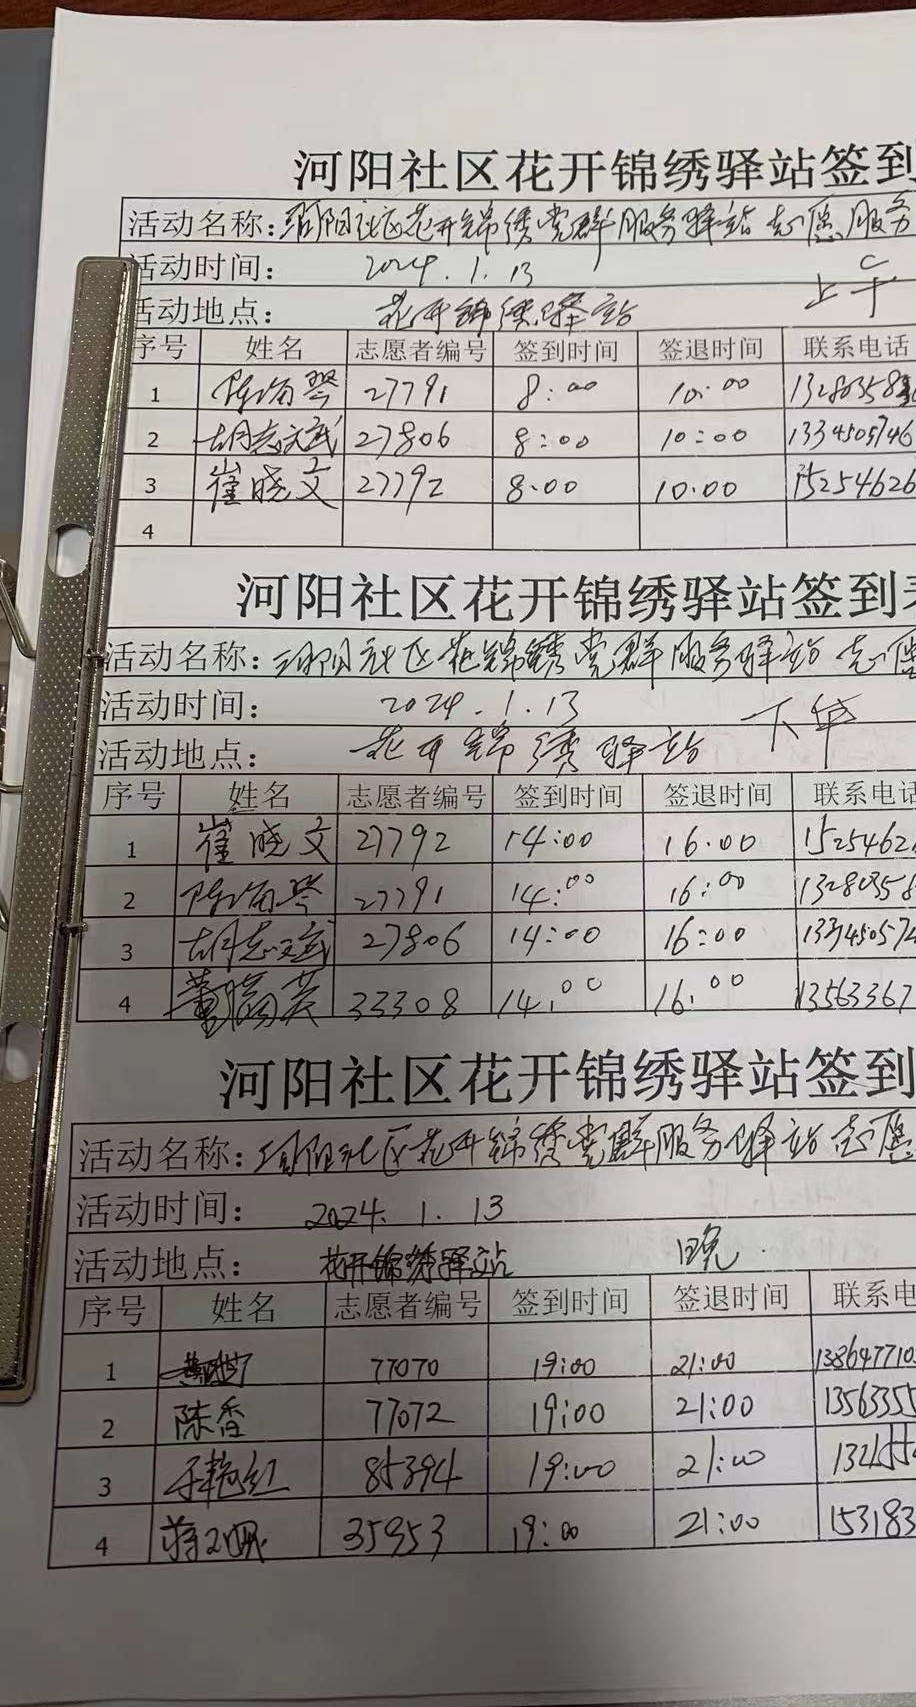 河阳社区花开锦绣驿站签到
活动名称：河阳社区花开锦绣党群服务驿站志愿服务
活动时间： 2024.1.13 上午
活动地点： 花开锦绣驿站
序号 姓名 志愿者编号 签到时间 签退时间 联系电话
1 27791 8:00 10:00 13280358
2 胡志斌 27806 8:00 10:00 1334505746
3 崔晓文 27792 8:00 10:00 15254626
4
河阳社区花开锦绣驿站签到表
活动名称：河阳社区花锦绣党群服务驿站志愿
活动时间： 2024.1.13 下午
活动地点： 花开锦绣驿站
序号 姓名 志愿者编号 签到时间 签退时间 联系电话
1 崔晓文 27792 14:00 16:00 1525462
2 27791 14:00 16:00 13280358
3 胡志斌 27806 14:00 16:00 133450574
4 33308 14:00 16:00 13563367
河阳社区花开锦绣驿站签到
活动名称：河阳社区花开锦绣党群服务驿站志愿
活动时间： 2024.1.13
活动地点： 花开锦绣驿站 晚
序号 姓名 志愿者编号 签到时间 签退时间 联系电
1 77070 19:00 21:00 138647710
2 陈香 77072 19:00 21:00 13563355
3 于艳红 85394 19:00 21:00 132455
4 35953 19:00 21:00 153183